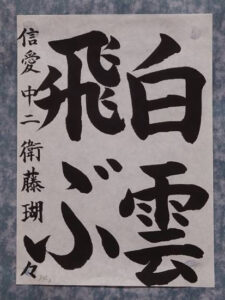 白雲
飛ぶ
信愛 中二 衛藤瑚々